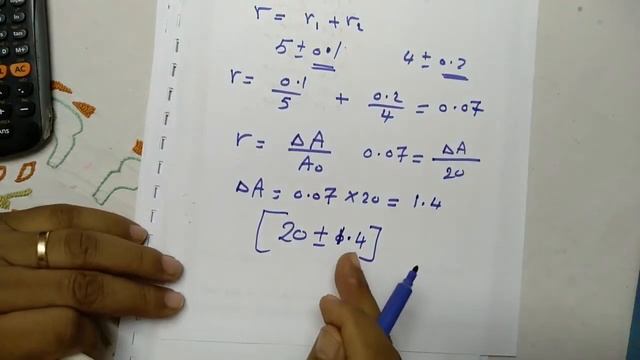 r = r₁ + r₂
5 ± 0.1 4 ± 0.2
r = 0.1/5 + 0.2/4 = 0.07
r = ΔA/A₀ 0.07 = ΔA/20
ΔA = 0.07 × 20 = 1.4
[20 ± 1.4]
AC
Ans